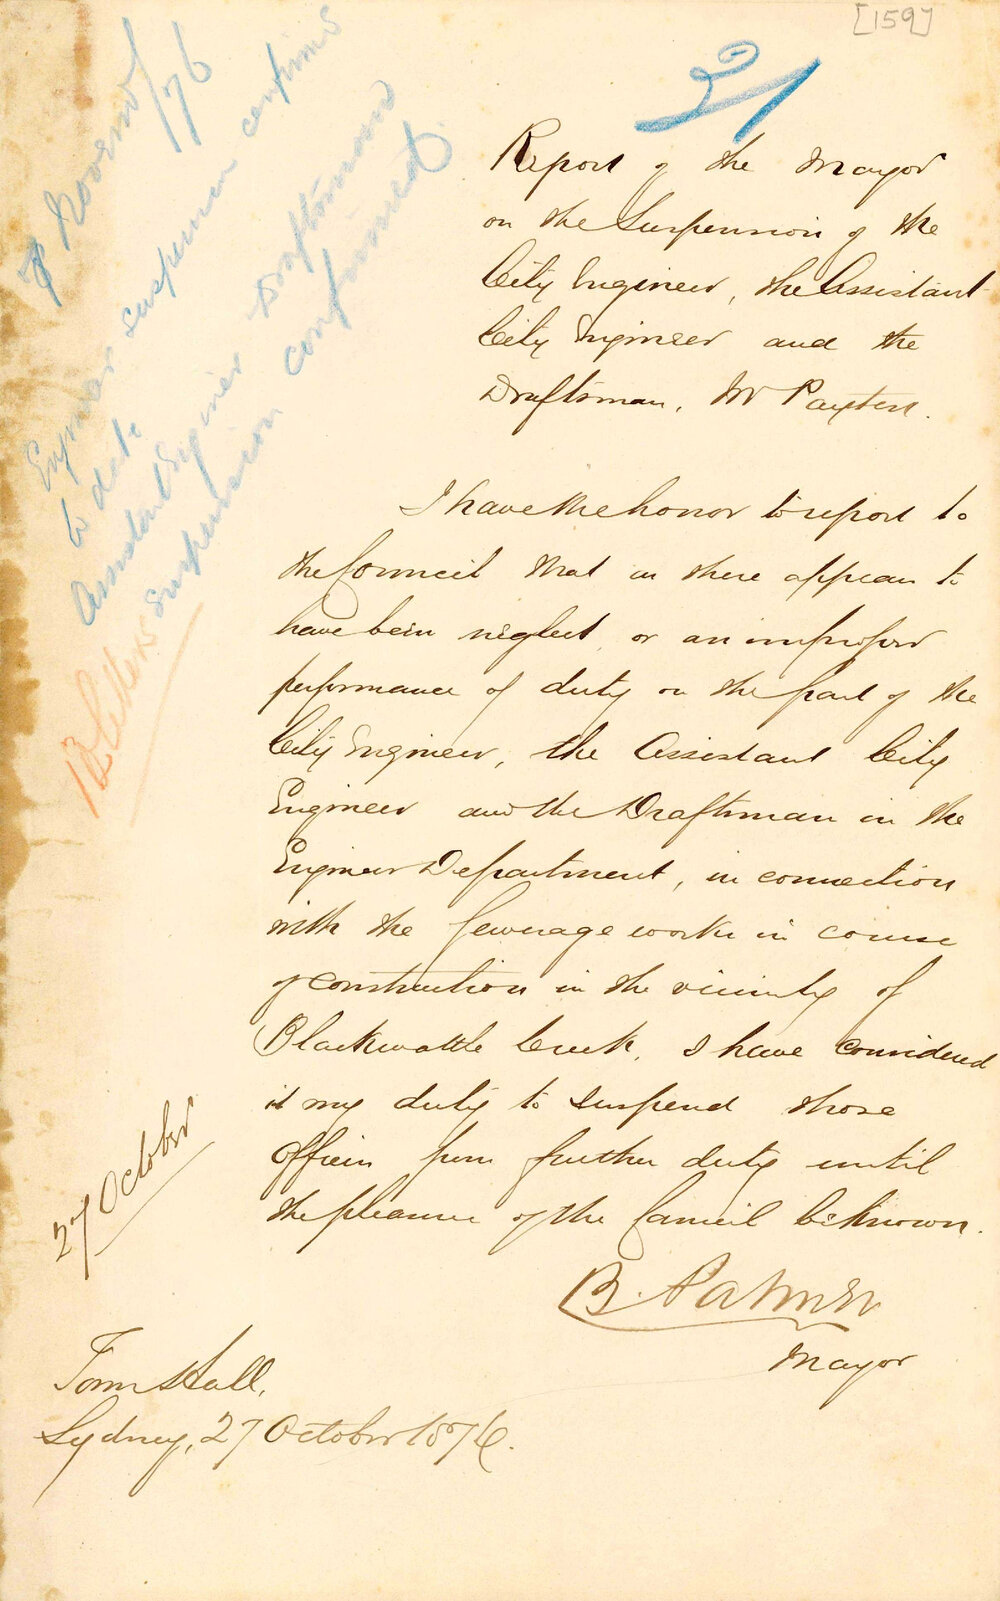 [159]
21
Report of the Mayor
on the Suspension of the
City Engineer, the Assistant
City Engineer and the
Draftsman, Mr Paxten.
I have the honor to report to
the Council that as there appears to
have been neglect, or an improper
performance of duty on the part of the
City Engineer, the Assistant City
Engineer and the Draftsman in the
Engineer Department, in connection
with the sewerage works in course
of construction in the vicinity of
Blackwattle Creek, I have considered
it my duty to suspend those
Officers from further duty until
the pleasure of the Council be known.
B. Palmer
Mayor
Town Hall,
Sydney, 27 October 1876.
27 October
7 November/76
Engineer suspension confirmed
to date
Assistant Engineer Draftsman
suspension confirmed
Letters